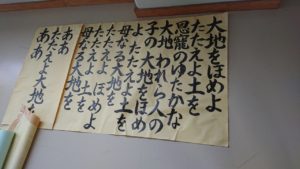 大地をほめよ
たたえよ土を
恩寵のゆたかな
大地 われら人の
子の 大地をほめ
よ たたえよ土を
母なる大地を
たたえよ ほめよ
たたえよ 土を
母なる大地を
ああ
たたえよ大地を
ああ